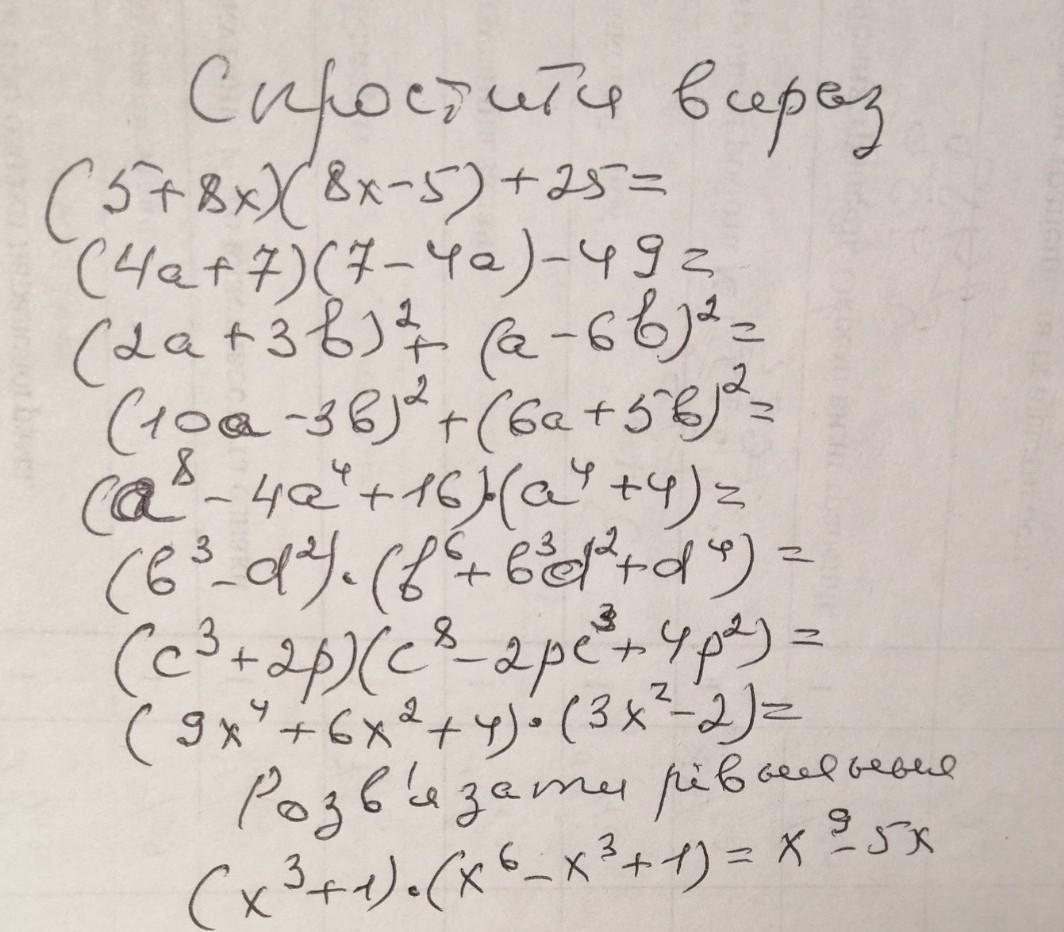 Спростити вираз
(5+8x)(8x-5)+25=
(4a+7)(7-4a)-49=
(2a+3b)²+(a-6b)²=
(10a-3b)²+(6a+5b)²=
(a⁸-4a⁴+16)·(a⁴+4)=
(b³-d²)·(b⁶+b³d²+d⁴)=
(c³+2p)(c⁸-2pc³+4p²)=
(9x⁴+6x²+4)·(3x²-2)=
Розв'язати рівняння
(x³+1)·(x⁶-x³+1)=x⁹-5x